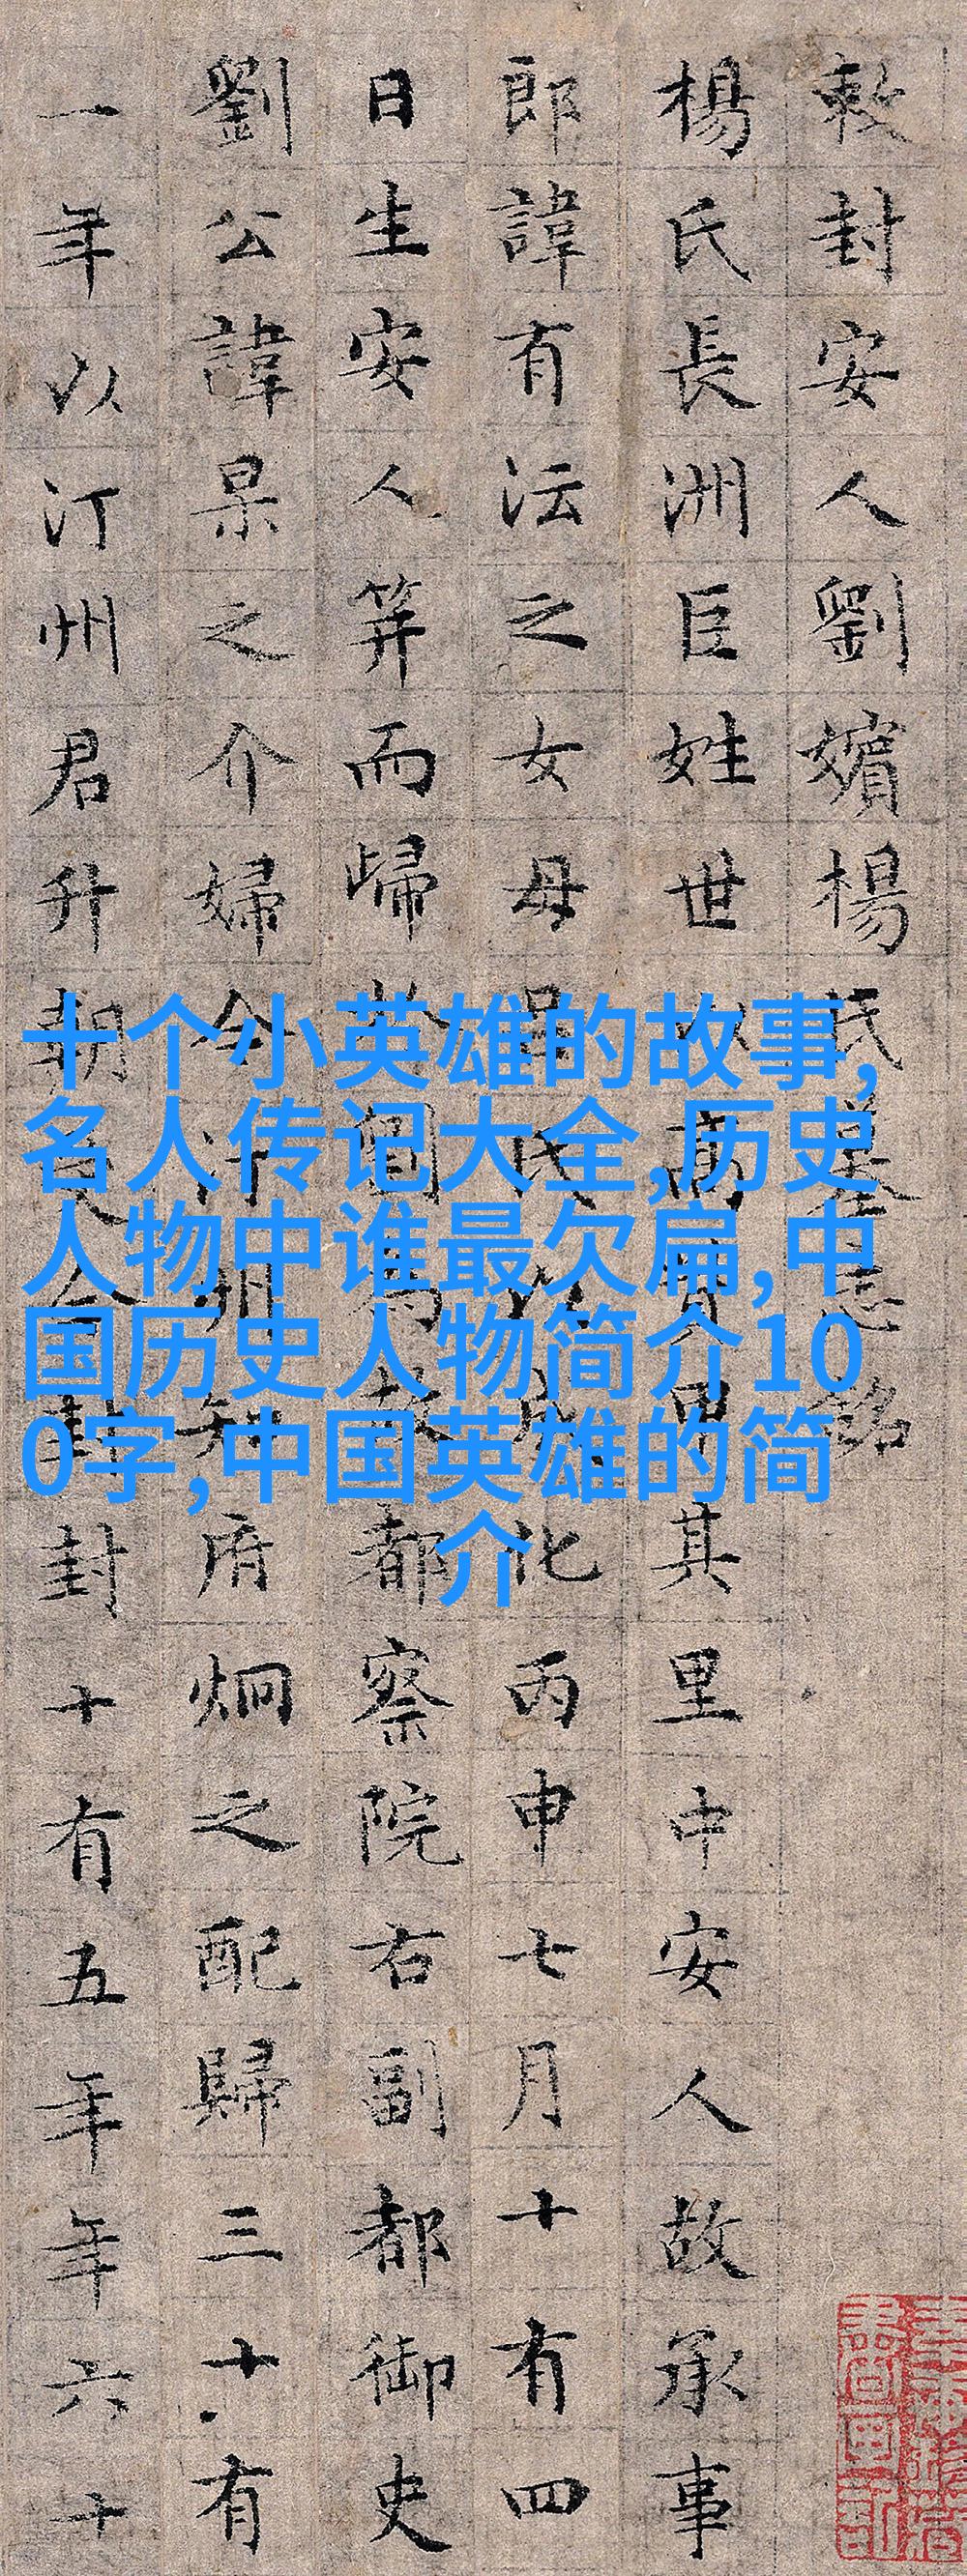 敕封安人劉嬪楊氏墓志銘
楊氏長洲巨姓世以高貲甲其里中安人故承事
郎諱有沄之女母呂氏以成化丙申七月十四
日生安人筓而歸於為故都察院右副都御史
劉公諱杲之介婦今汀州知府炯之配歸三十有
一年以汀州君升朝封封十有五年年六十
十个小英雄的故事,
名人传记大全,历史
人物中谁最欠扁,中
国历史人物简介10
0字,中国英雄的简
介